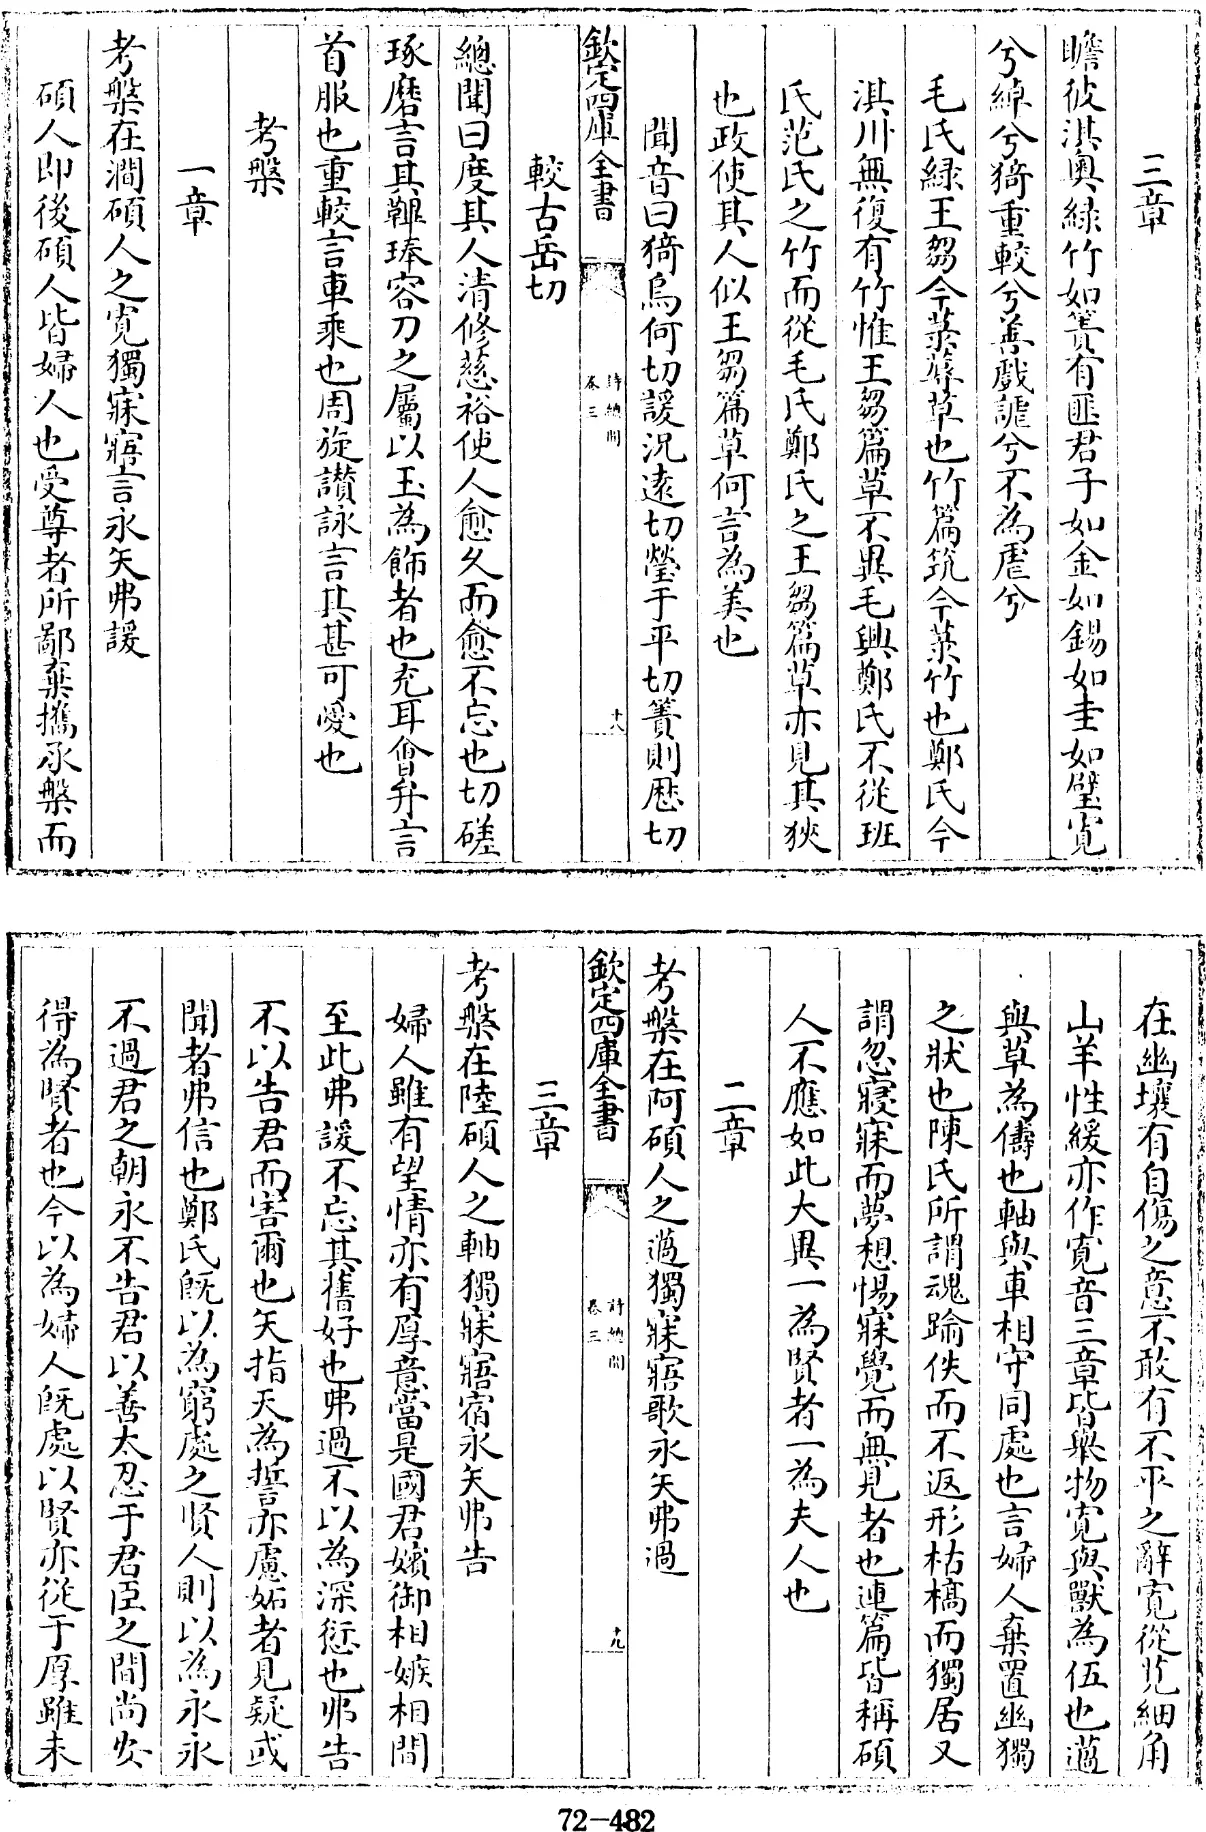 三章
瞻彼淇奥緑竹如簀有匪君子如金如錫如圭如璧寛
兮綽兮猗重較兮善戲謔兮不為虐兮
毛氏緑王芻今菉蓐草也竹篇筑今菉竹也鄭氏今
淇川無復有竹惟王芻篇草不異毛與鄭氏不從班
氏范氏之竹而從毛氏鄭氏之王芻篇草亦見其狹
也政使其人似王芻篇草何言為美也
聞音曰猗烏何切諼況遠切瑩于平切簀則厯切
欽定四庫全書
詩總聞
卷三
十八
較古岳切
總聞曰度其人清修慈裕使人愈久而愈不忘也切磋
琢磨言其鞸琫容刀之屬以玉為飾者也充耳會弁言
首服也重較言車乘也周旋讃詠言其甚可愛也
考槃
一章
考槃在澗碩人之寛獨寐寤言永矢弗諼
碩人即後碩人皆婦人也受尊者所鄙棄攜承槃而
在幽壤有自傷之意不敢有不平之辭寛從莧細角
山羊性緩亦作寛音三章皆舉物寛與獸為伍也薖
與草為儔也軸與車相守同處也言婦人棄置幽獨
之狀也陳氏所謂魂踰佚而不返形枯槁而獨居又
謂忽寢寐而夢想惕寐覺而無見者也連篇皆稱碩
人不應如此大異一為賢者一為夫人也
二章
考槃在阿碩人之薖獨寐寤歌永矢弗過
欽定四庫全書
詩總聞
卷三
十九
三章
考槃在陸碩人之軸獨寐寤宿永矢弗告
婦人雖有望情亦有厚意當是國君嬪御相嫉相間
至此弗諼不忘其舊好也弗過不以為深愆也弗告
不以告君而害爾也矢指天為誓亦慮妬者見疑或
聞者弗信也鄭氏旣以為窮處之賢人則以為永永
不過君之朝永不告君以善太忍于君臣之間尚安
得為賢者也今以為婦人旣處以賢亦從于厚雖未
72-482